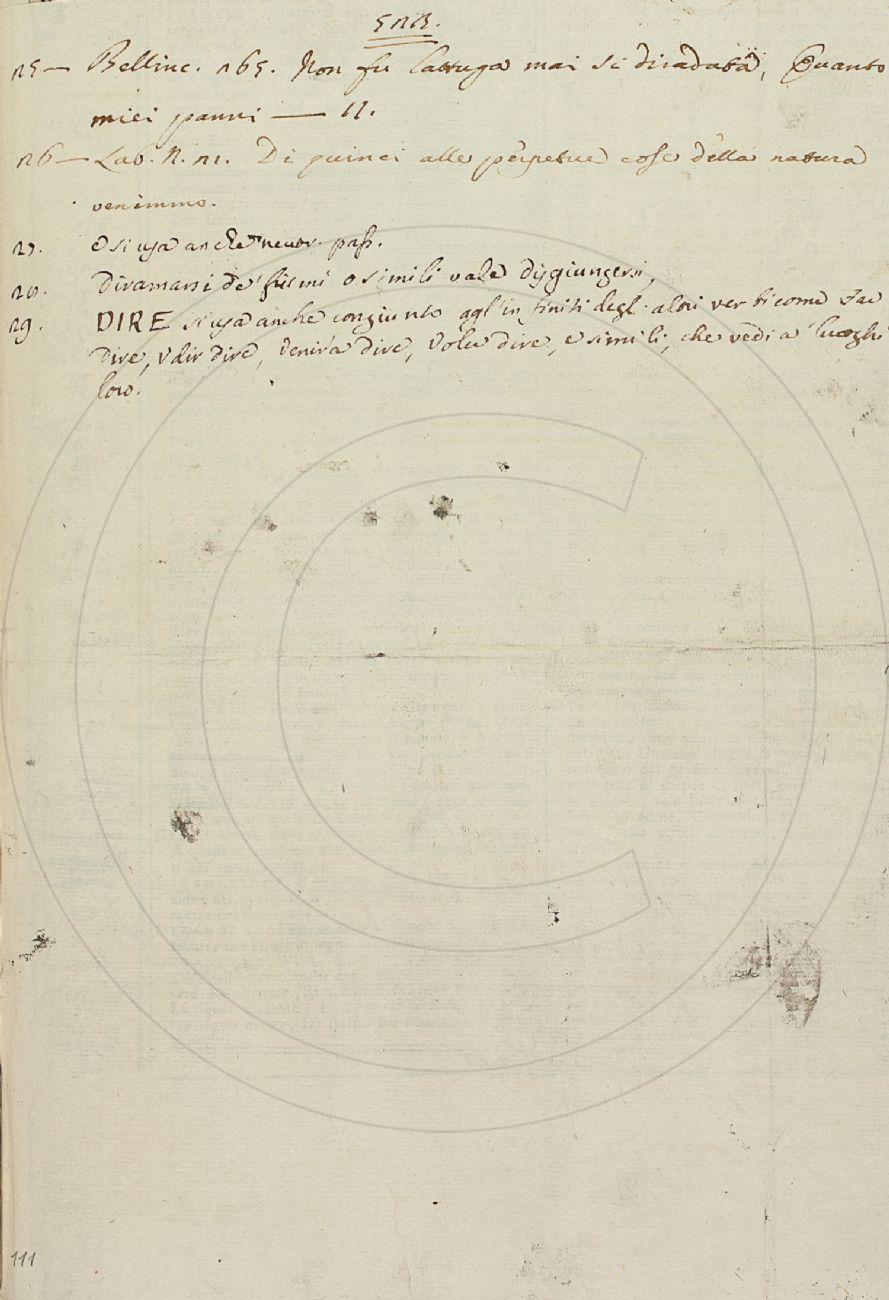 512.
25— Bellinc. 265. Non fu lattuga mai sì diradata, Quanto
miei panni — 11.
26— Lab. n. 21. Di quinci alle perpetue cose della natura
venimmo.
27. e si usa anche neutr. pass.
28. Diramarsi de' fiumi o simili vale disgiungersi,
29. DIRE si usa anche congiunto agl' infiniti degl. altri verbi come Far
Dire, Udir dire, Venir'a dire, Voler dire, e simili, che vedi a' luoghi
loro.
111